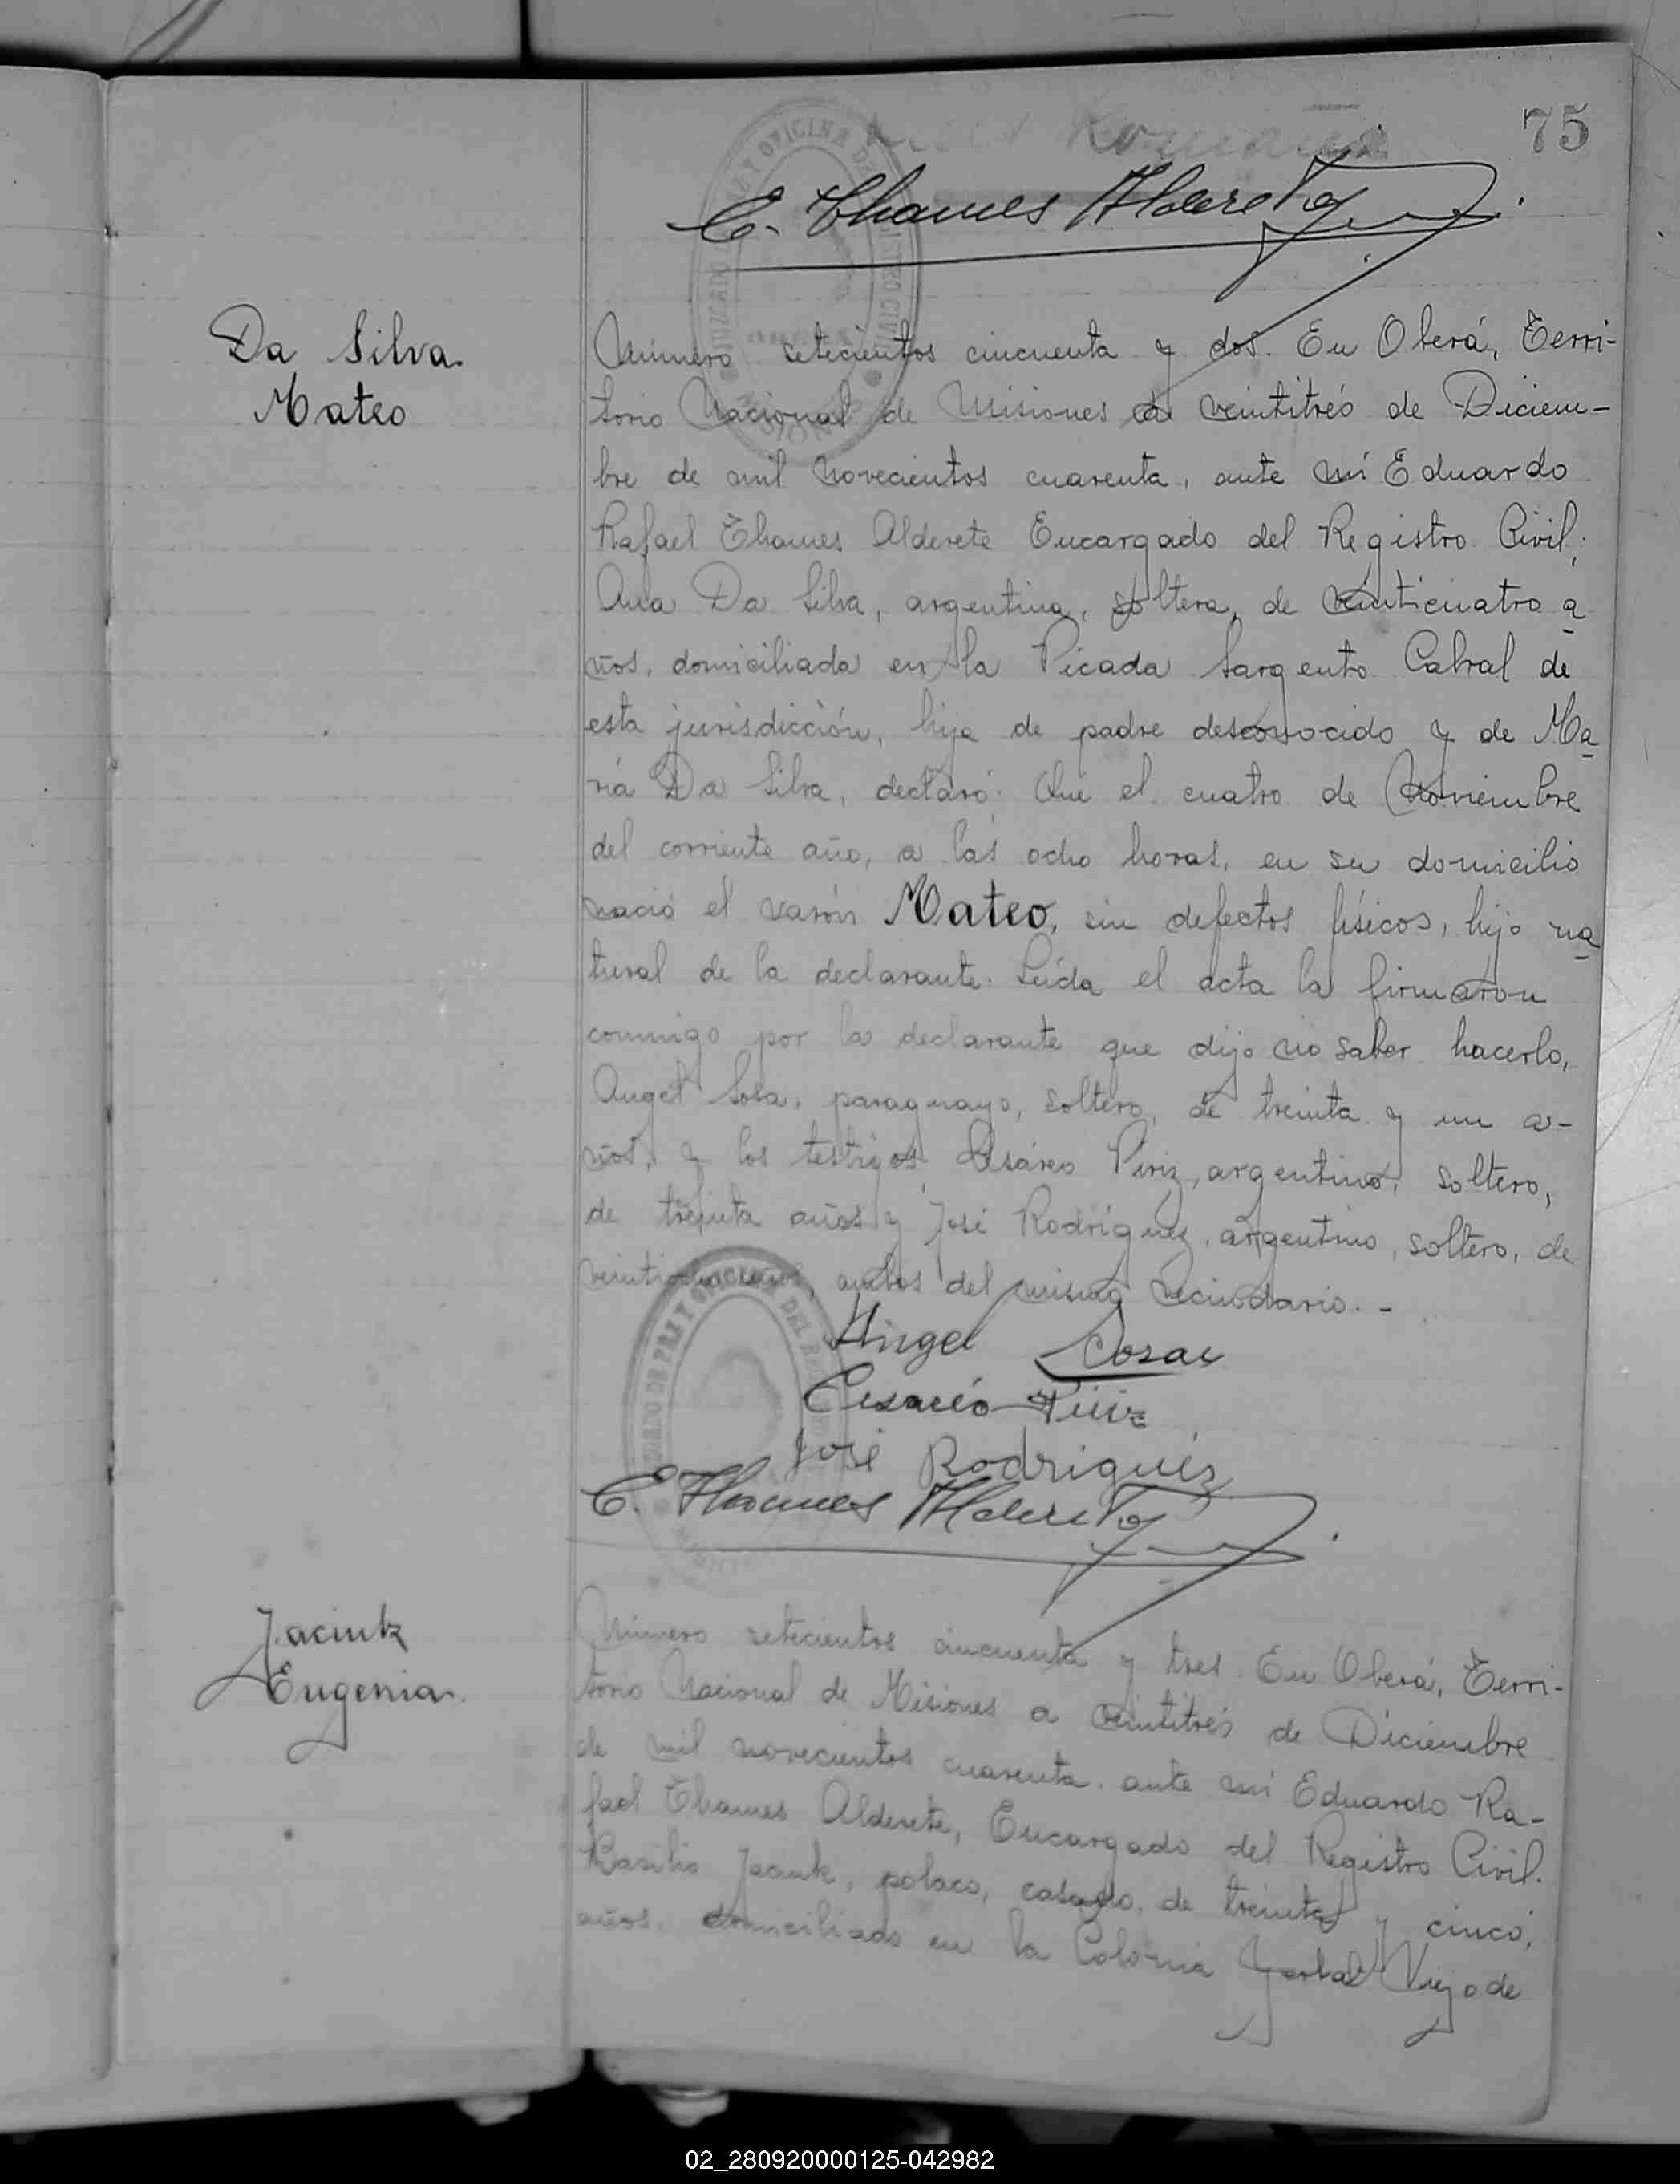 75
E. Thames Alderete
Da Silva
Mateo
Número setecientos cincuenta y dos. En Oberá, Terri-
torio Nacional de Misiones a veintitrés de Diciem-
bre de mil novecientos cuarenta, ante mí Eduardo
Rafael Thames Alderete Encargado del Registro Civil;
Ana Da Silva, argentina, soltera, de veinticuatro a
ños, domiciliada en la Picada Sargento Cabral de
esta jurisdicción, hija de padre desconocido y de Ma
ría Da Silva, declaró: Que el cuatro de Noviembre
del corriente año, a las ocho horas, en su domicilio
nació el varón Mateo, sin defectos físicos, hijo na
tural de la declarante. Leída el acta la firmaron
conmigo por la declarante que dijo no saber hacerlo,
Angel Sosa, paraguayo, soltero, de treinta y un a-
ños, y los testigos Cesáreo Piriz, argentino, soltero,
de treinta años y José Rodríguez, argentino, soltero, de
veintiocho años, ambos del mismo vecindario. -
Angel Sosa
Cesareo Piriz
José Rodriguez
E. Thames Alderete
Jaciuk
Eugenia
Número setecientos cincuenta y tres. En Oberá, Terri-
torio Nacional de Misiones a veintitrés de Diciembre
de mil novecientos cuarenta, ante mí Eduardo Ra-
fael Thames Alderete, Encargado del Registro Civil.
Basilio Jaciuk, polaco, casado, de treinta y cinco
años, domiciliado en la Colonia Yerbal Viejo de
02_280920000125-042982